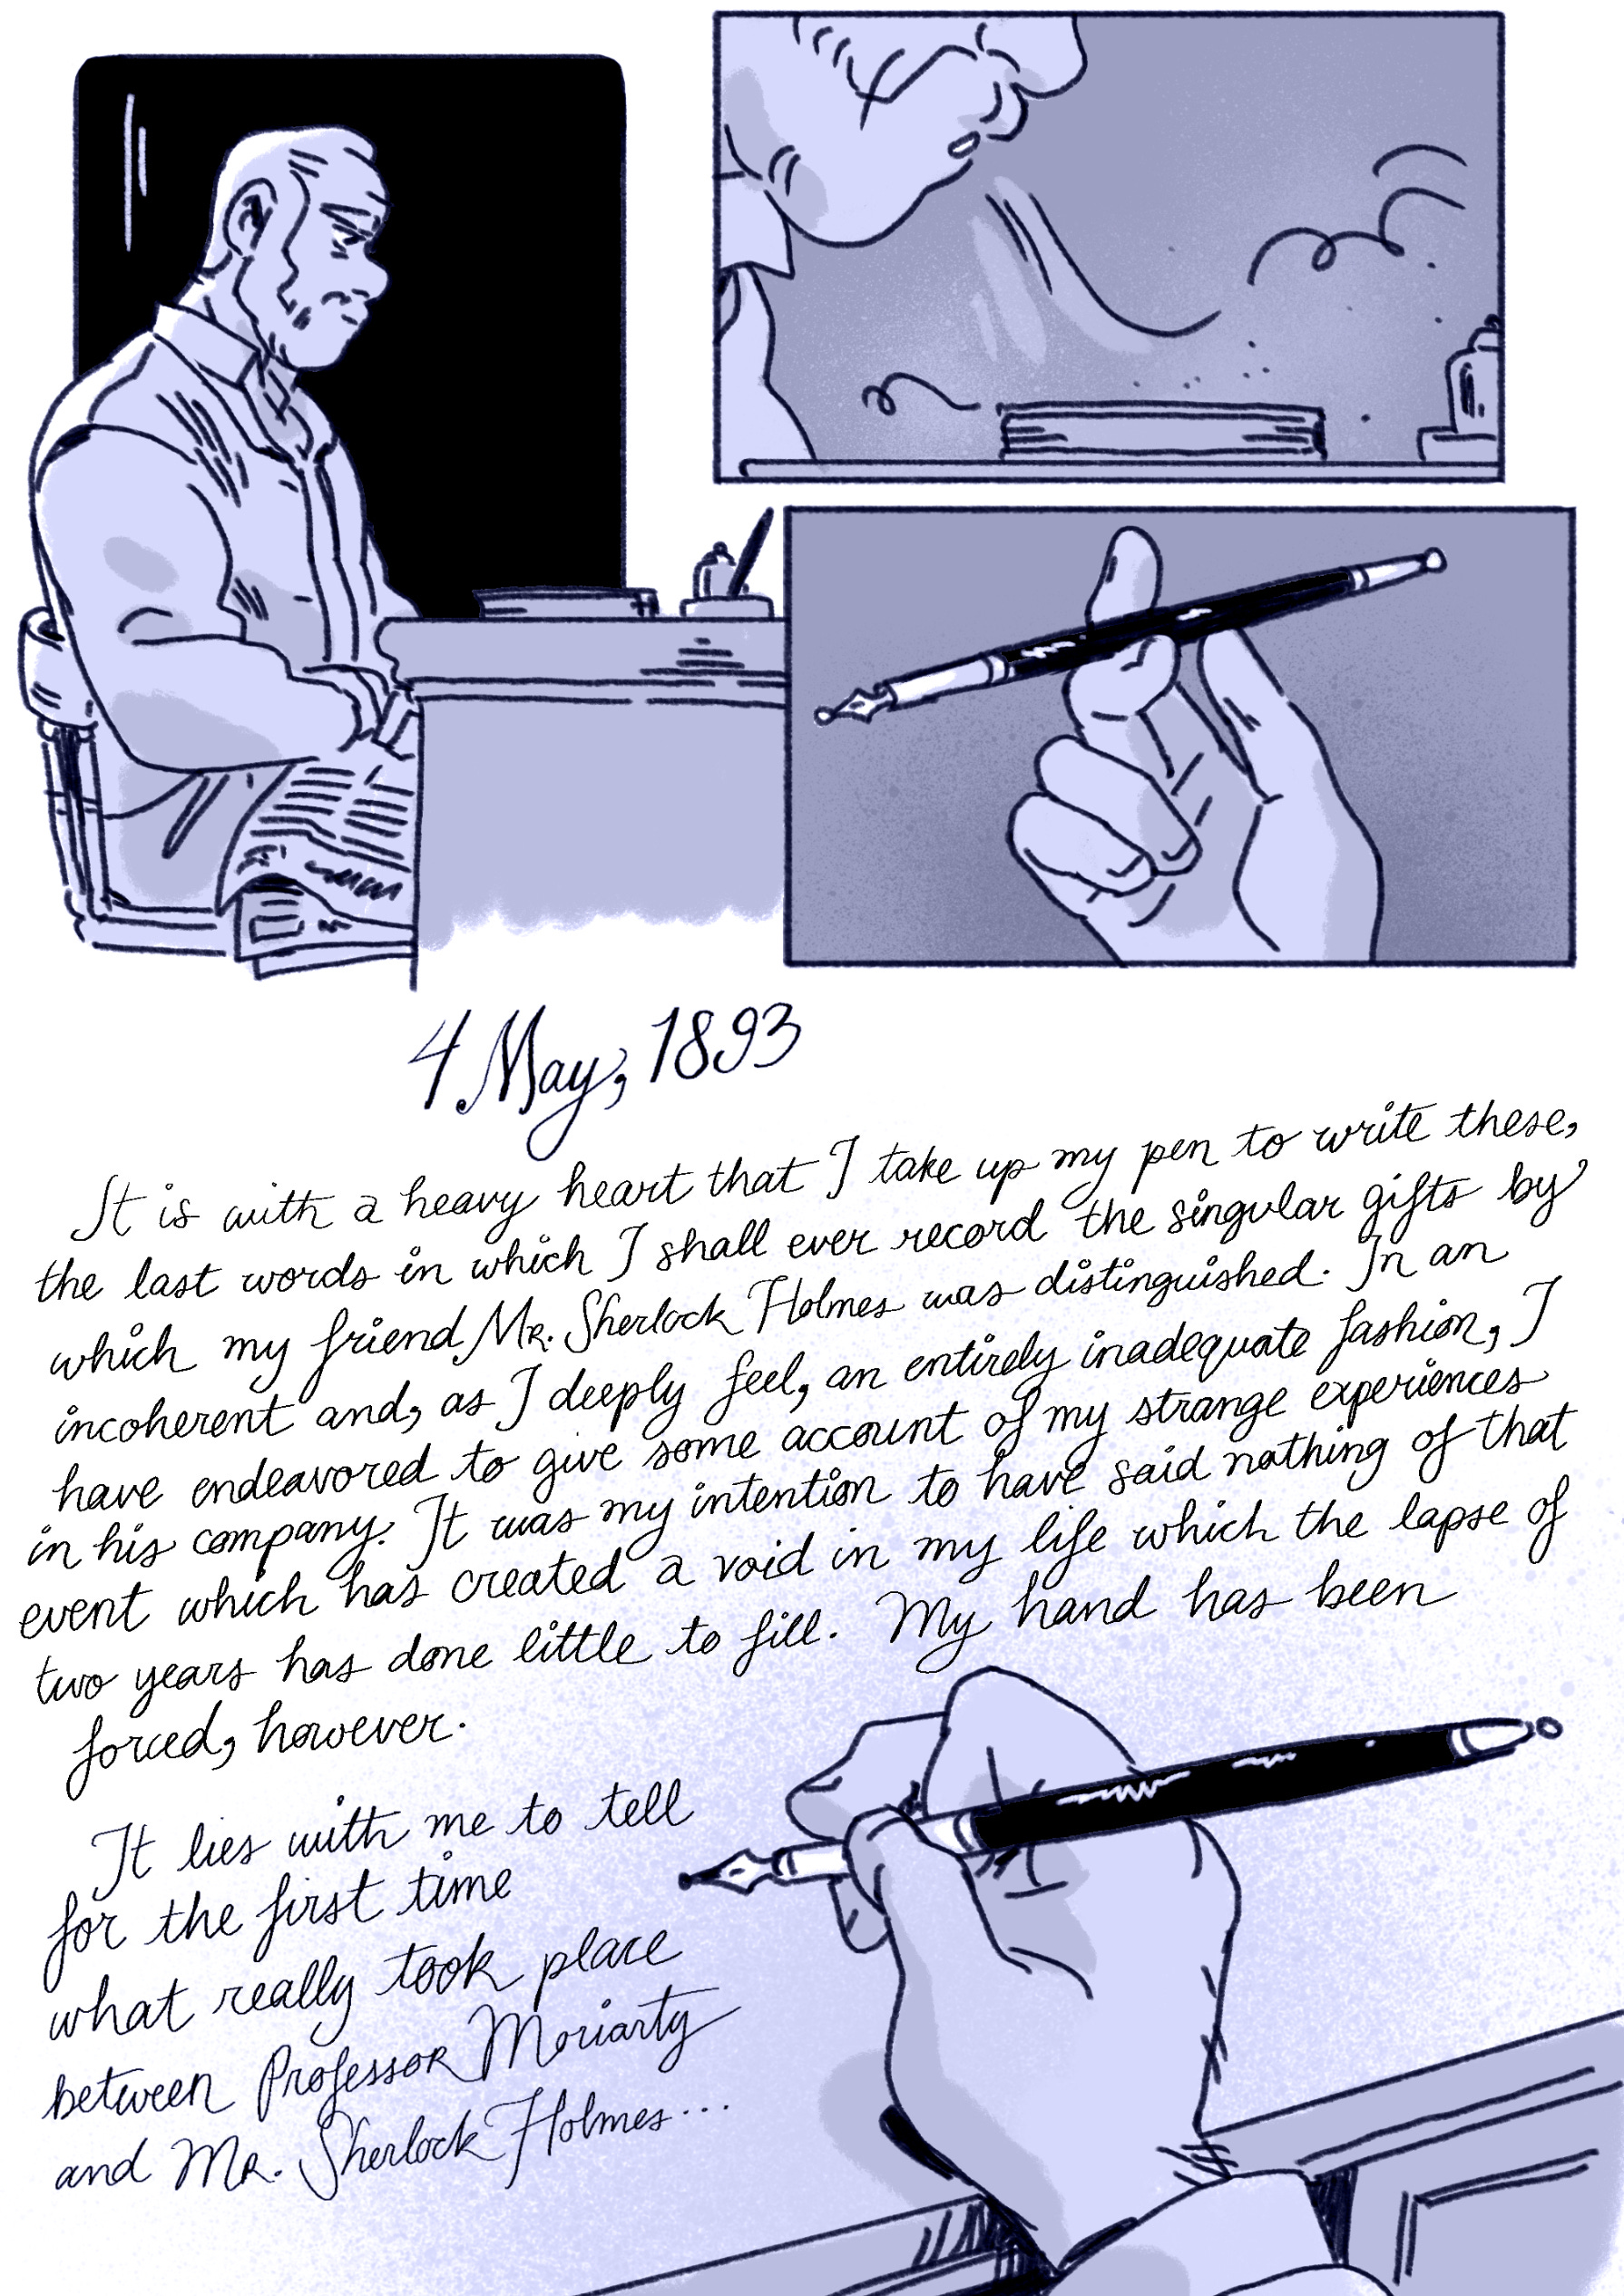 4 May, 1893
It is with a heavy heart that I take up my pen to write these,
the last words in which I shall ever record the singular gifts by
which my friend Mr. Sherlock Holmes was distinguished. In an
incoherent and, as I deeply feel, an entirely inadequate fashion, I
have endeavored to give some account of my strange experiences
in his company. It was my intention to have said nothing of that
event which has created a void in my life which the lapse of
two years has done little to fill. My hand has been
forced, however.
It lies with me to tell
for the first time
what really took place
between Professor Moriarty
and Mr. Sherlock Holmes...